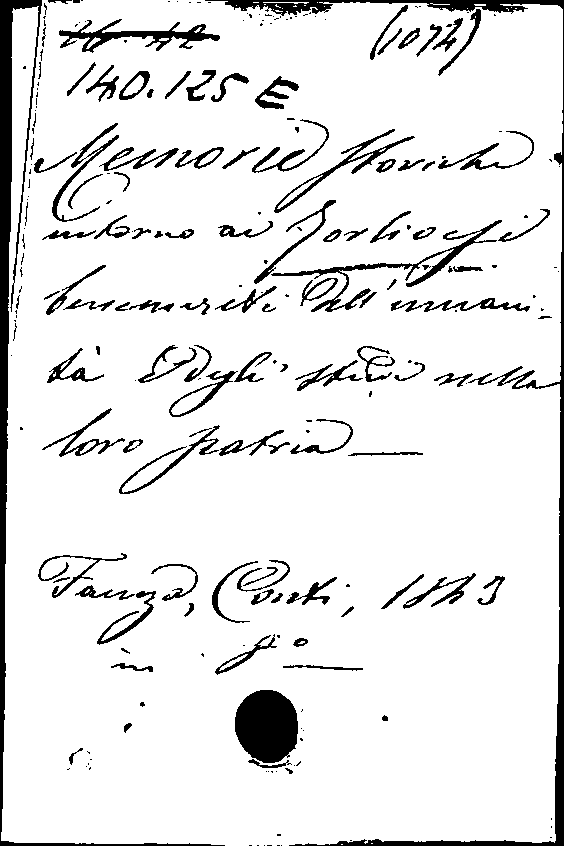 26.42
(1072)
140.125 E
Memorie storiche
intorno ai Forlivesi
benemeriti dell'umani-
tà e degli studi nella
loro patria —
Faenza, Conti, 1843
in 8º —